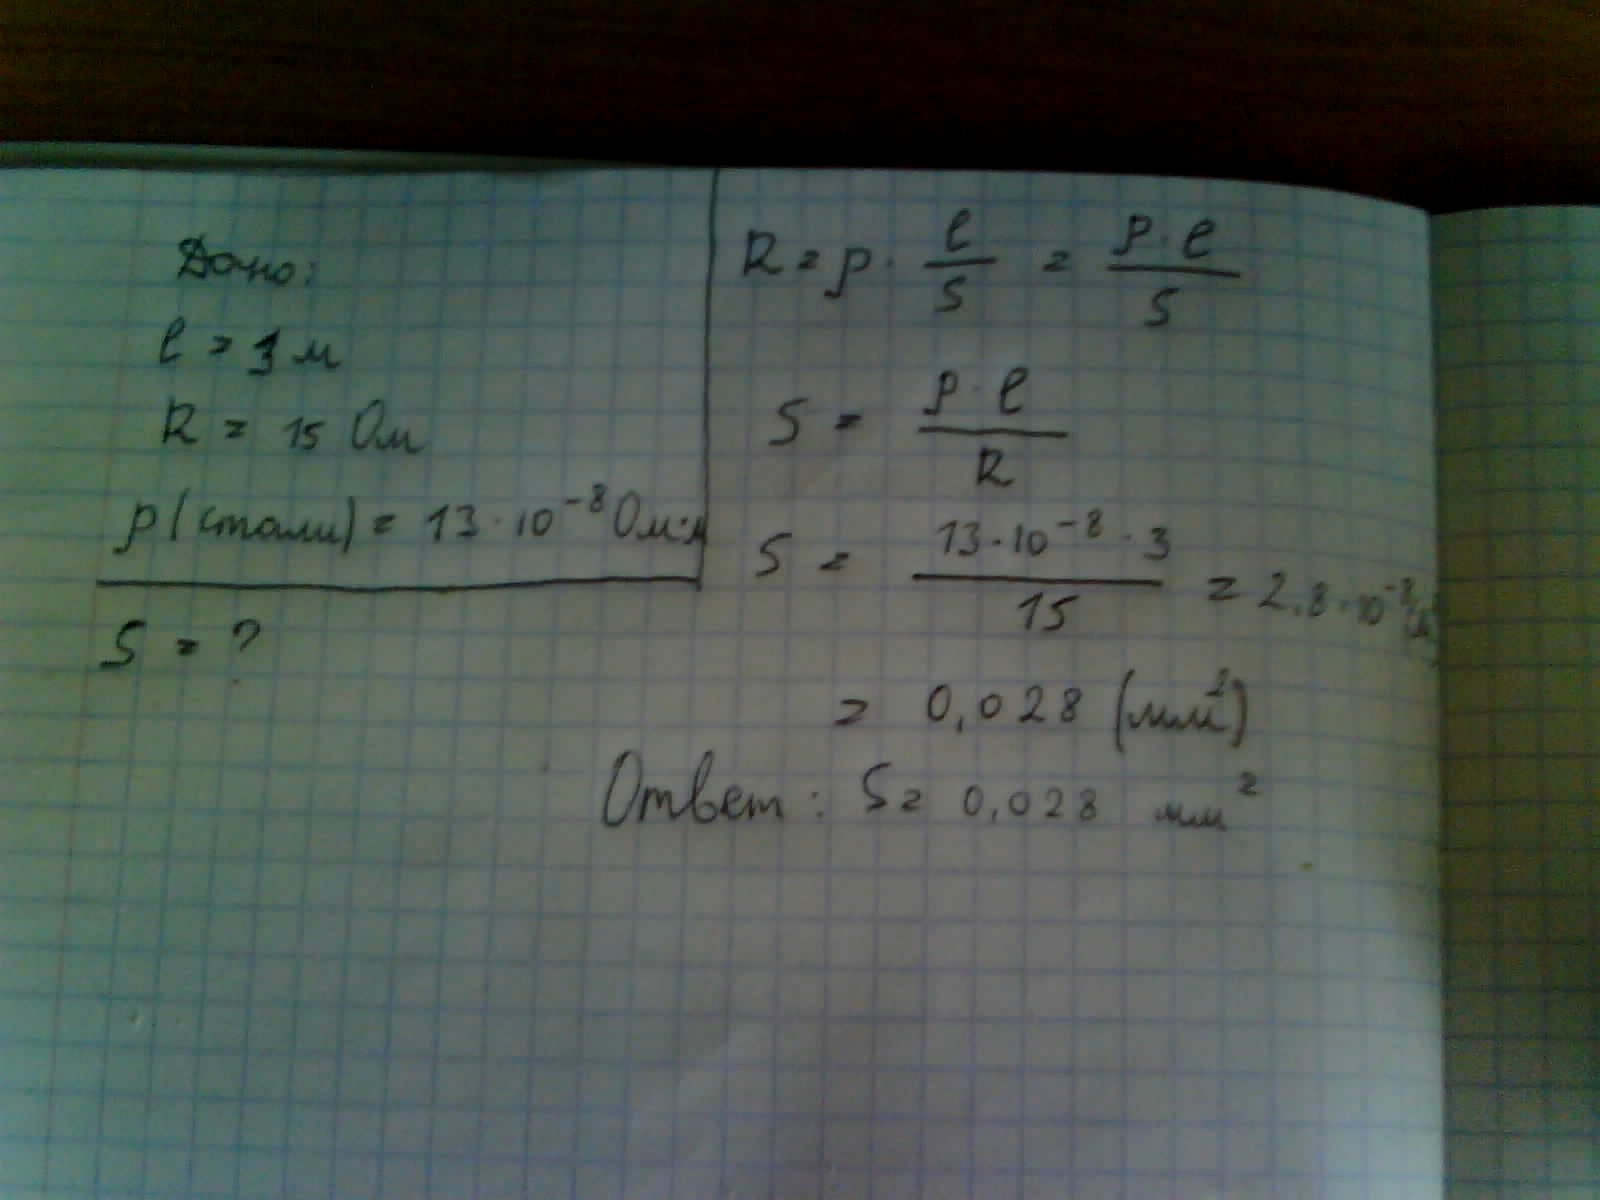 Дано:
l = 3 м
R = 15 Ом
ρ(стали) = 13·10⁻⁸ Ом·м
S = ?
R = ρ · l/S = ρ·l/S
S = ρ·l/R
S = 13·10⁻⁸·3/15 = 2.8·10⁻⁸ (м
= 0,028 (мм²)
Ответ: S = 0,028 мм²